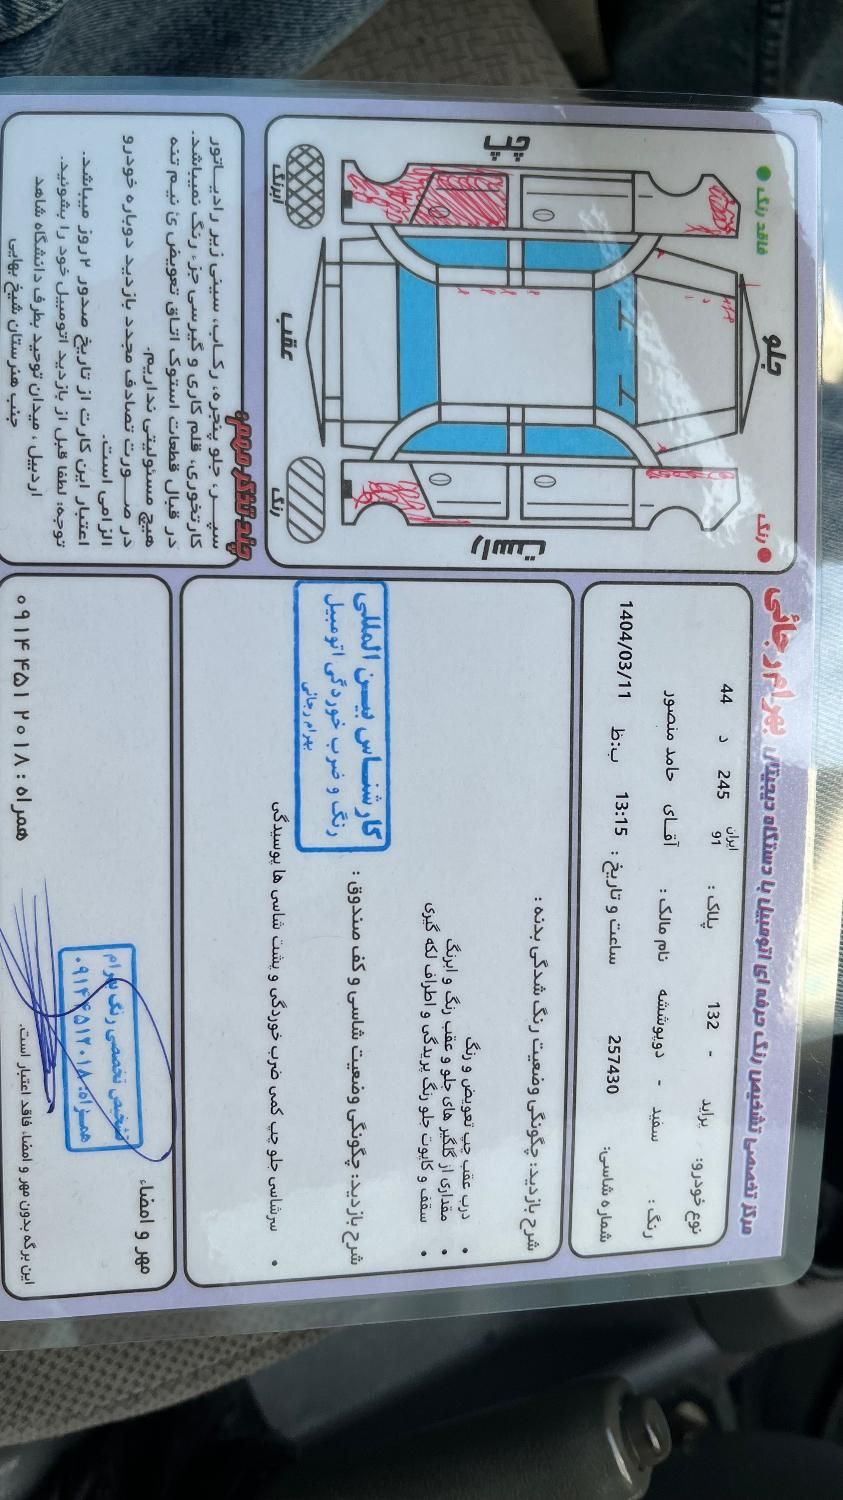 مرکز تخصصی تشخیص رنگ حرفه ای اتومبیل با دستگاه دیجیتال بهرام رجائی
نوع خودرو: پراید - 132 پلاک: ایران 91 245 د 44
رنگ: سفید - دوپوششه نام مالک: آقای حامد منصور
شماره شاسی: 257430 ساعت و تاریخ: 13:15 ب:ظ 1404/03/11
شرح بازدید: چگونگی وضعیت رنگ شدگی بدنه:
• درب عقب چپ تعویض و رنگ
• مقداری از گلگیر های جلو و عقب رنگ و ابرنگ
• سقف و کاپوت جلو رنگ پریدگی و اطراف لکه گیری
شرح بازدید: چگونگی وضعیت شاسی و کف صندوق:
• سرشاسی جلو چپ کمی ضرب خوردگی و پشت شاسی ها پوسیدگی
کارشناس بین المللی
رنگ و ضرب خوردگی اتومبیل
بهرام رجائی
مهر و امضاء
تشخیص تخصصی رنگ بهرام
همراه: ۰۹۱۴۴۵۱۲۰۱۸
این برگه بدون مهر و امضاء فاقد اعتبار است.
همراه: ۰۹۱۴ ۴۵۱ ۲۰۱۸
فاقد رنگ
رنگ
جلو
چپ
راست
عقب
ابرنگ
رنگ
چند تذکر مهم:
سپر، جلو پنجره، رکاب، سینی زیر رادیاتور
کارتخوری، قلم کاری و گیرسی جزء رنگ نمیباشد.
در قبال قطعات استوک اتاق تعویض ی نیم تنه
هیچ مسئولیتی نداریم.
در صورت تصادف مجدد بازدید دوباره خودرو
الزامی است.
اعتبار این کارت از تاریخ صدور ۲ روز میباشد.
توجه: لطفا قبل از بازدید اتومبیل خود را بشوئید.
اردبیل، میدان توحید بطرف دانشگاه شاهد
جنب هنرستان شیخ بهایی